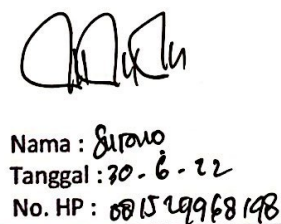 Nama : Surono
Tanggal : 30 - 6 - 22
No. HP : 081529968198